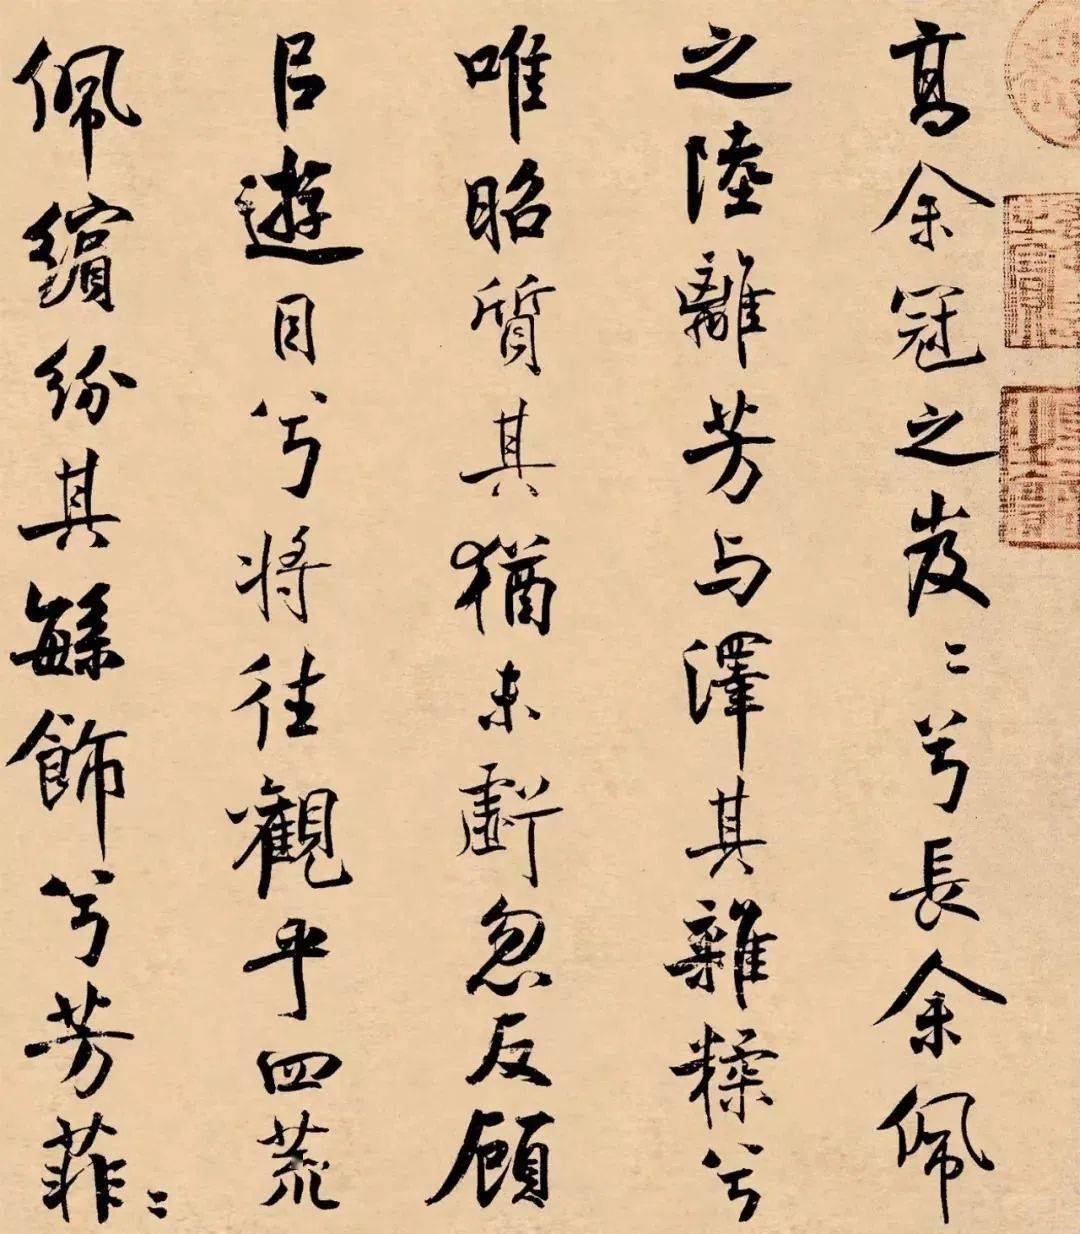 高余冠之岌〻兮長余佩
之陸離芳与澤其雜糅兮
唯昭質其猶未虧忽反顧
㠯遊目兮將往觀乎四荒
佩繽紛其繇飾兮芳菲〻